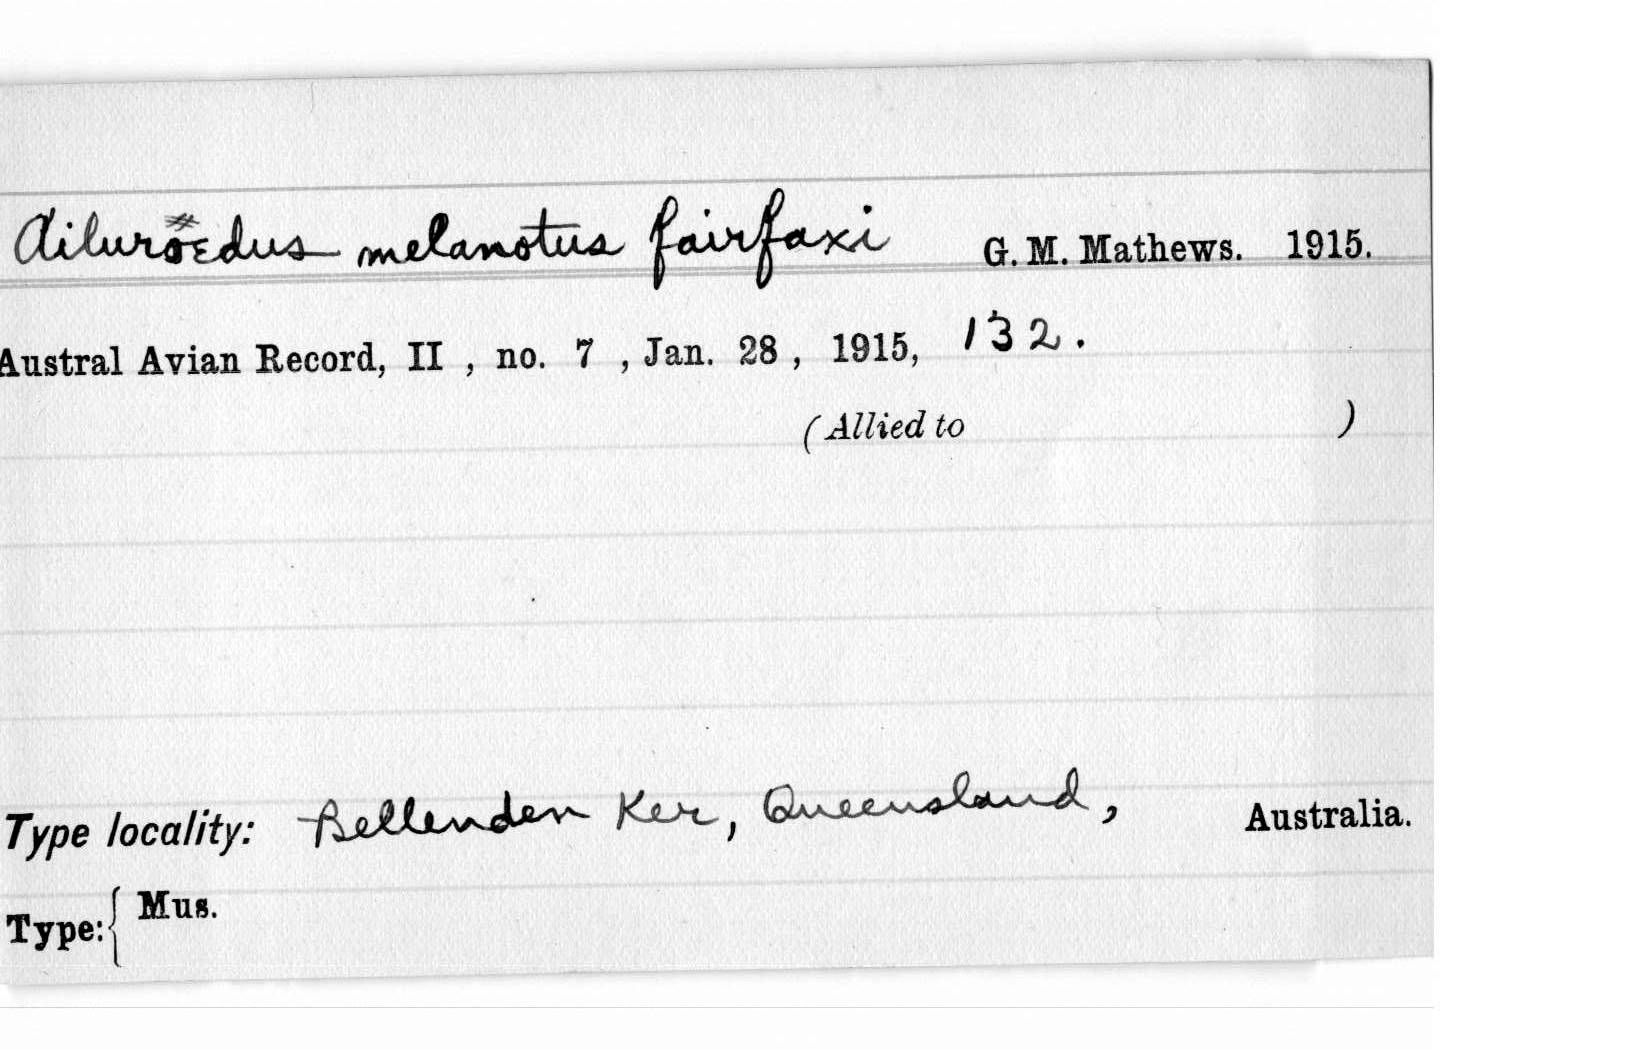 Ailuroedus melanotus fairfaxi G. M. Mathews. 1915.
Austral Avian Record, II , no. 7 , Jan. 28 , 1915, 132.
(Allied to )
Type locality: Bellenden Ker, Queensland, Australia.
Type: { Mus.